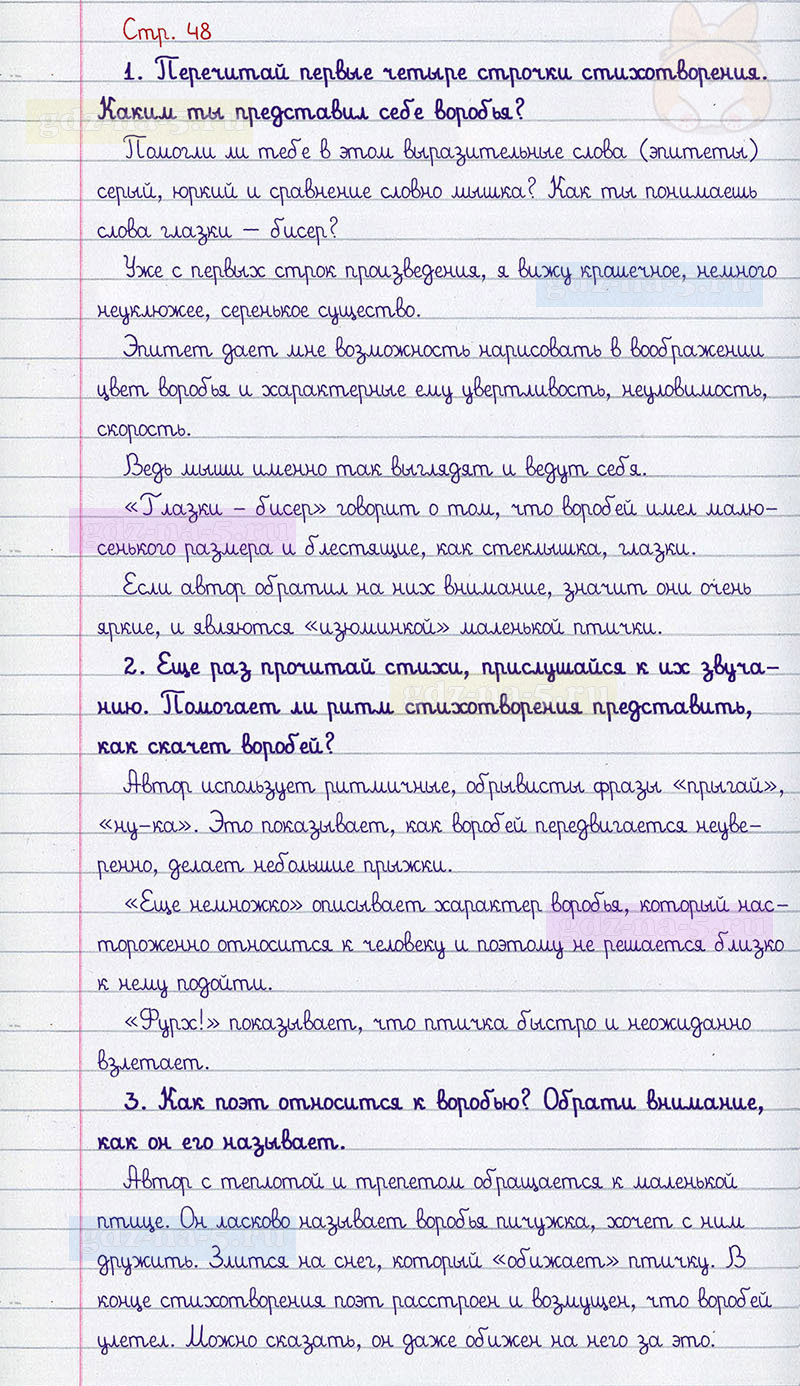 Стр. 48
1. Перечитай первые четыре строчки стихотворения.
Каким ты представил себе воробья?
gdz-na-5.ru
Помогли ли тебе в этом выразительные слова (эпитеты)
серый, юркий и сравнение словно мышка? Как ты понимаешь
слова глазки – бисер?
Уже с первых строк произведения, я вижу крошечное, немного
gdz-na-5.ru
неуклюжее, серенькое существо.
Эпитет дает мне возможность нарисовать в воображении
цвет воробья и характерные ему увертливость, неуловимость,
скорость.
Ведь мыши именно так выглядят и ведут себя.
«Глазки – бисер» говорит о том, что воробей имел малю-
gdz-na-5.ru
сенького размера и блестящие, как стеклышка, глазки.
Если автор обратил на них внимание, значит они очень
яркие, и являются «изюминкой» маленькой птички.
2. Еще раз прочитай стихи, прислушайся к их звуча-
gdz-na-5.ru
нию. Помогает ли ритм стихотворения представить,
как скачет воробей?
Автор использует ритмичные, обрывисты фразы «прыгай»,
«ну-ка». Это показывает, как воробей передвигается неуве-
ренно, делает небольшие прыжки.
«Еще немножко» описывает характер воробья, который нас-
gdz-na-5.ru
тороженно относится к человеку и поэтому не решается близко
к нему подойти.
«Фурх!» показывает, что птичка быстро и неожиданно
взлетает.
3. Как поэт относится к воробью? Обрати внимание,
как он его называет.
Автор с теплотой и трепетом обращается к маленькой
птице. Он ласково называет воробья пичужка, хочет с ним
gdz-na-5.ru
дружить. Злится на снег, который «обижает» птичку. В
конце стихотворения поэт расстроен и возмущен, что воробей
улетел. Можно сказать, он даже обижен на него за это: